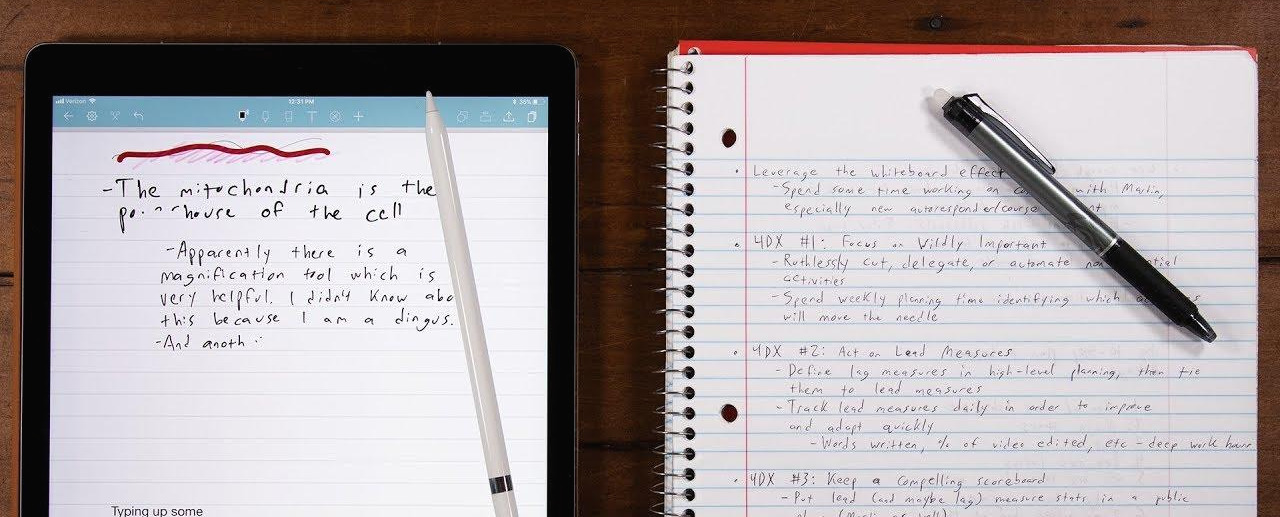 Verizon
12:31 PM
36%
-The mitochondria is the
house of the cell
-Apparently there is a
magnification tool which is
very helpful. I didn't know abo
this because I am a dingus.
-And anoth
Typing up some
• Leverage the whiteboard effect
-Spend some time working on with Martin,
especially new autoresponder/course
• 4DX #1: Focus on Wildly Important
-Ruthlessly cut, delegate, or automate
activities
-Spend weekly planning time identifying which
will move the needle
• 4DX #2: Act on Lead Measures
-Define lag measures in high-level planning, then tie
them to lead measures
-Track lead measures daily in order to improve
and adapt quickly
-Words written, % of video edited, etc - deep work hours
• 4DX #3: Keep a compelling scoreboard
-Put lead (and maybe lag) measure stats in a public